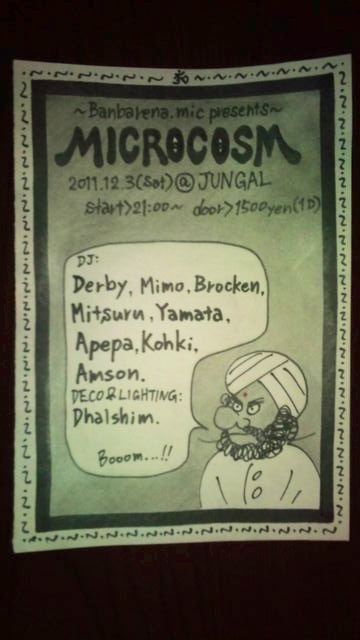 ॐ
~Banbarena.mic presents~
MICROCOSM
2011.12.3(Sat)@JUNGAL
start>21:00~ door>1500yen(1D)
DJ:
Derby, Mimo, Brocken,
Mitsuru, Yamata,
Apepa, Kohki,
Amson.
DECO&LIGHTING:
Dhalshim.
Booom...!!